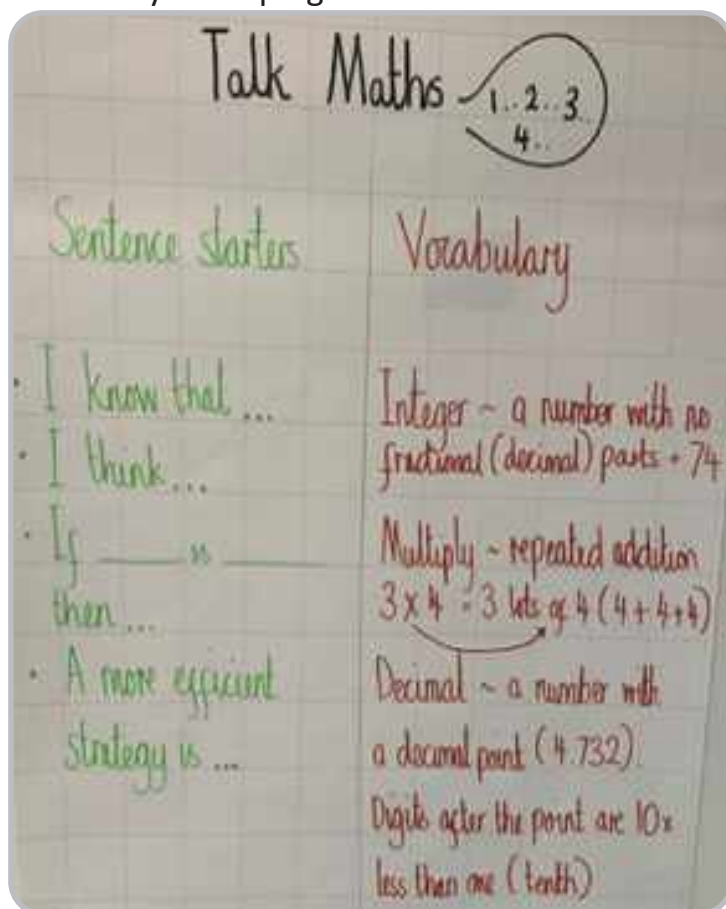 Talk Maths
1..2..3..
4..
Sentence starters
• I know that...
• I think...
• If ____ is ____
then...
• A more efficient
strategy is ...
Vocabulary
Integer ~ a number with no
fractional (decimal) parts - 74
Multiply ~ repeated addition
3 x 4 = 3 lots of 4 (4+4+4)
Decimal ~ a number with
a decimal point (4.732).
Digits after the point are 10x
less than one (tenth)